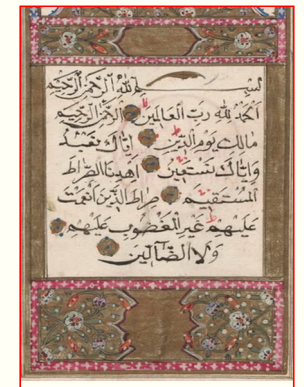 بسم الله الرحمن الرحيم
الحمد لله رب العالمين الرحمن الرحيم
مالك يوم الدين اياك نعبد
واياك نستعين اهدنا الصراط
المستقيم صراط الذين انعمت
عليهم غير المغضوب عليهم
ولا الضالين